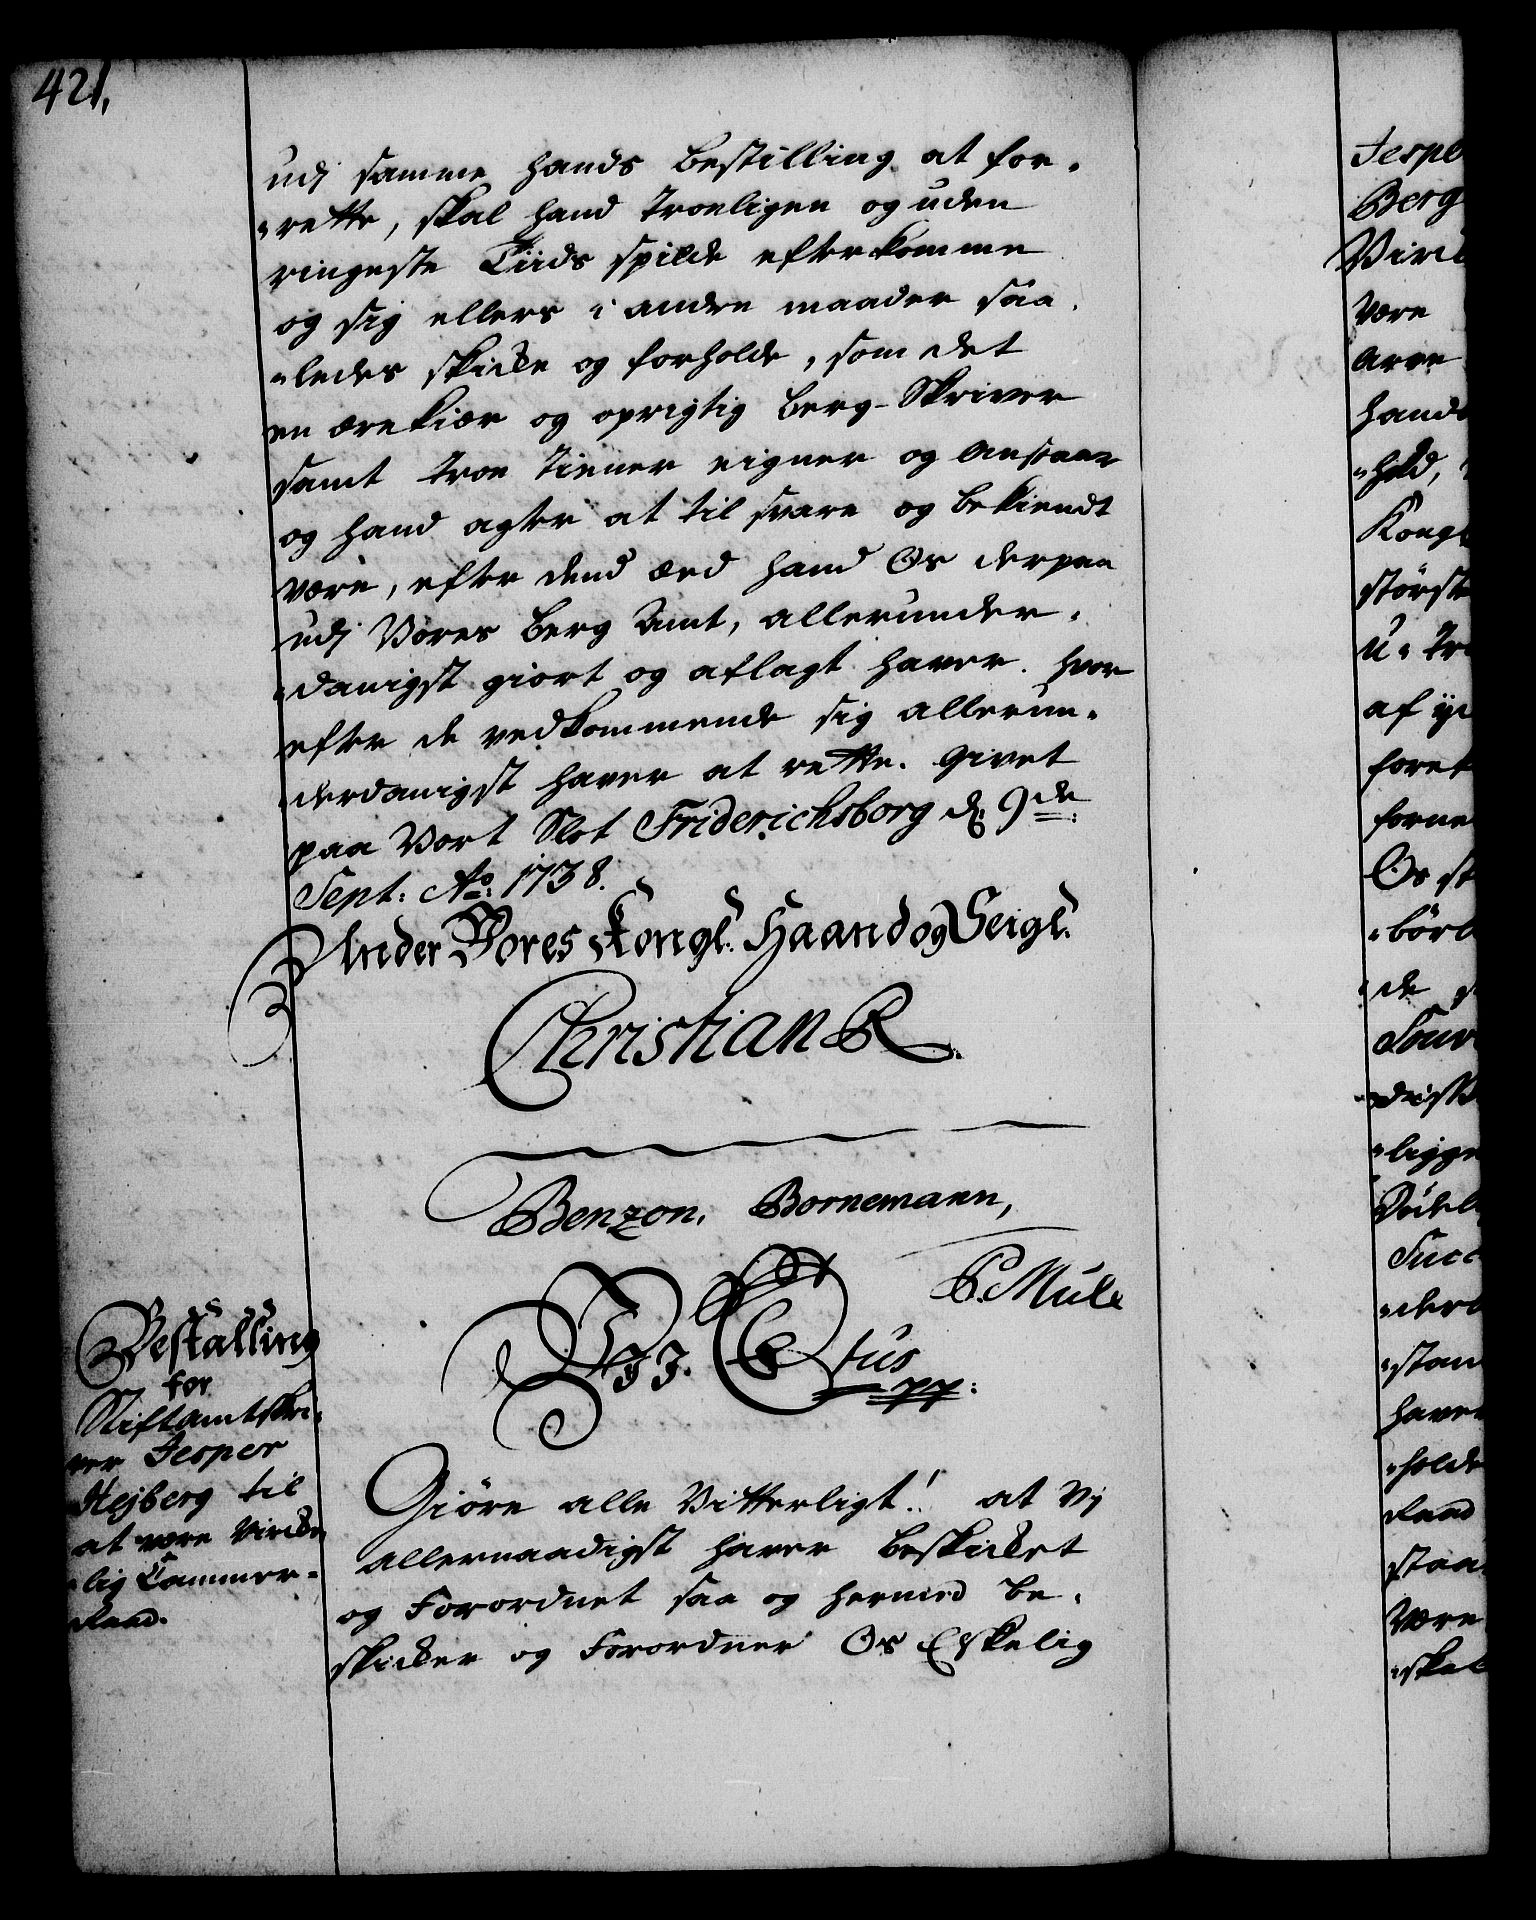 421,
udj samme hands bestilling at for-
-rette, skal hand troeligen og uden
ringeste Tiids spilde efterkomme
og sig ellers i andre maader saa-
-ledes skicke og forholde, som det
en ærekiær og oprigtig Berg-Skriver
samt troe tiener eigner og anstaar
og hand agter at til svare og bekiendt
være, efter dend æd hand Os derpaa
udj Vores Berg Amt, allerunder-
-danigst giort og aflagt haver. hvor
efter de vedkommende sig allerun-
-derdanigst haver at rette. Givet
paa Vort Slot Friderichsborg d: 9de:
Sept: Ao: 1738.
Under Vores Kongl: Haand og Seigl:
Christian R.
Benzon. Bornemann,
P. Mule
Bestalling
for
Stiftamtskri-
ver Jesper
Hejberg til
at være Virke-
-lig Cammer-
Raad.
Vj C 6tus
pp:
Giöre alle Vitterligt! at Vj
allernaadigst haver beskicket
og Forordnet saa og hermed be-
skicker og Forordner Os Elskelig
Jespe
Berg
Virc
være
Arve
hands
-hold,
Kongl
störst
U-tr
af ij
foret
forne
Os st
-börl
-de
Souv
-disk
-ligge
Dödel
Succ
-derd
-stam
haver
-holde
Raad
staa
være
-skal